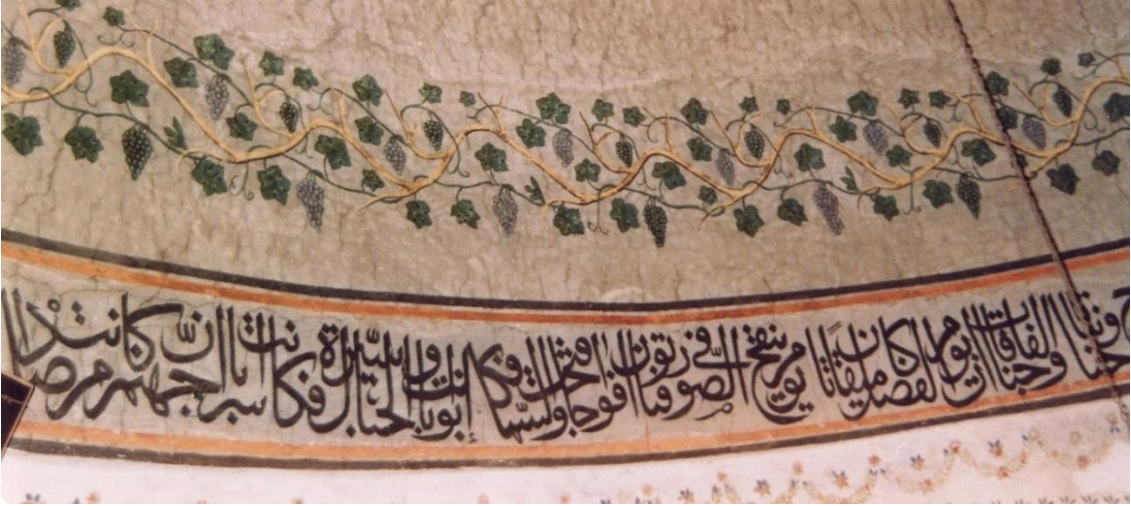 حبا ونباتا وجنات الفافا ان يوم الفصل كان ميقاتا يوم ينفخ في الصور فتاتون افواجا وفتحت السماء فكانت ابوابا وسيرت الجبال فكانت سرابا ان جهنم كانت مرصادا